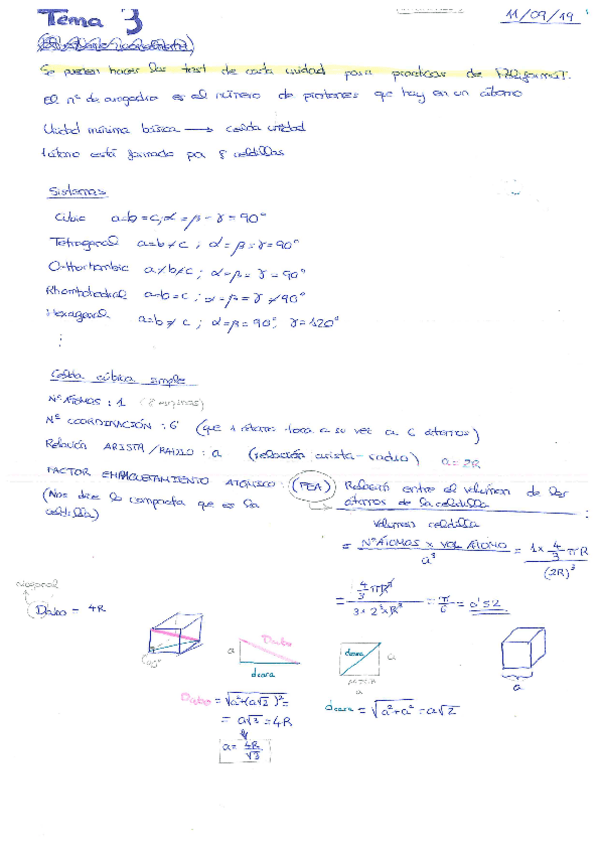 Tema 3
11/09/19
Se pueden hacer los test de cada unidad para practicar de Poliformat.
El nº de avogadro es el número de protones que hay en un átomo
Unidad mínima básica → celda unidad
átomo está formado por 8 celdillas
Sistemas
Cúbic a=b=c; α=β=γ=90°
Tetragonal a=b≠c; α=β=γ=90°
Orthorhombic a≠b≠c; α=β=γ=90°
Rhombohedral a=b=c; α=β=γ≠90°
Hexagonal a=b≠c; α=β=90°, γ=120°
⋮
Celda cúbica simple
Nº ÁTOMOS: 1 (8 esquinas)
Nº COORDINACIÓN: 6 (que 1 átomo toca a su vez a 6 átomos)
Relación ARISTA/RADIO: a (relación arista-radio) a=2R
FACTOR EMPAQUETAMIENTO ATÓMICO: (FEA) Relación entre el volumen de los
(Nos dice lo compacta que es la celdilla) átomos de la celdilla
volumen celdilla
= Nº ÁTOMOS x VOL ÁTOMO / a³ = 1x 4/3 πR / (2R)³
= 4/3 πR³ / 3x2³xR³ = π/6 = 0'52
diagonal
Dcubo = 4R
a
Dcubo
dcara
dcara
a
a
a
Dcubo = √a²+(a√2)² =
= a√3 = 4R
a = 4R/√3
dcara = √a²+a² = a√2